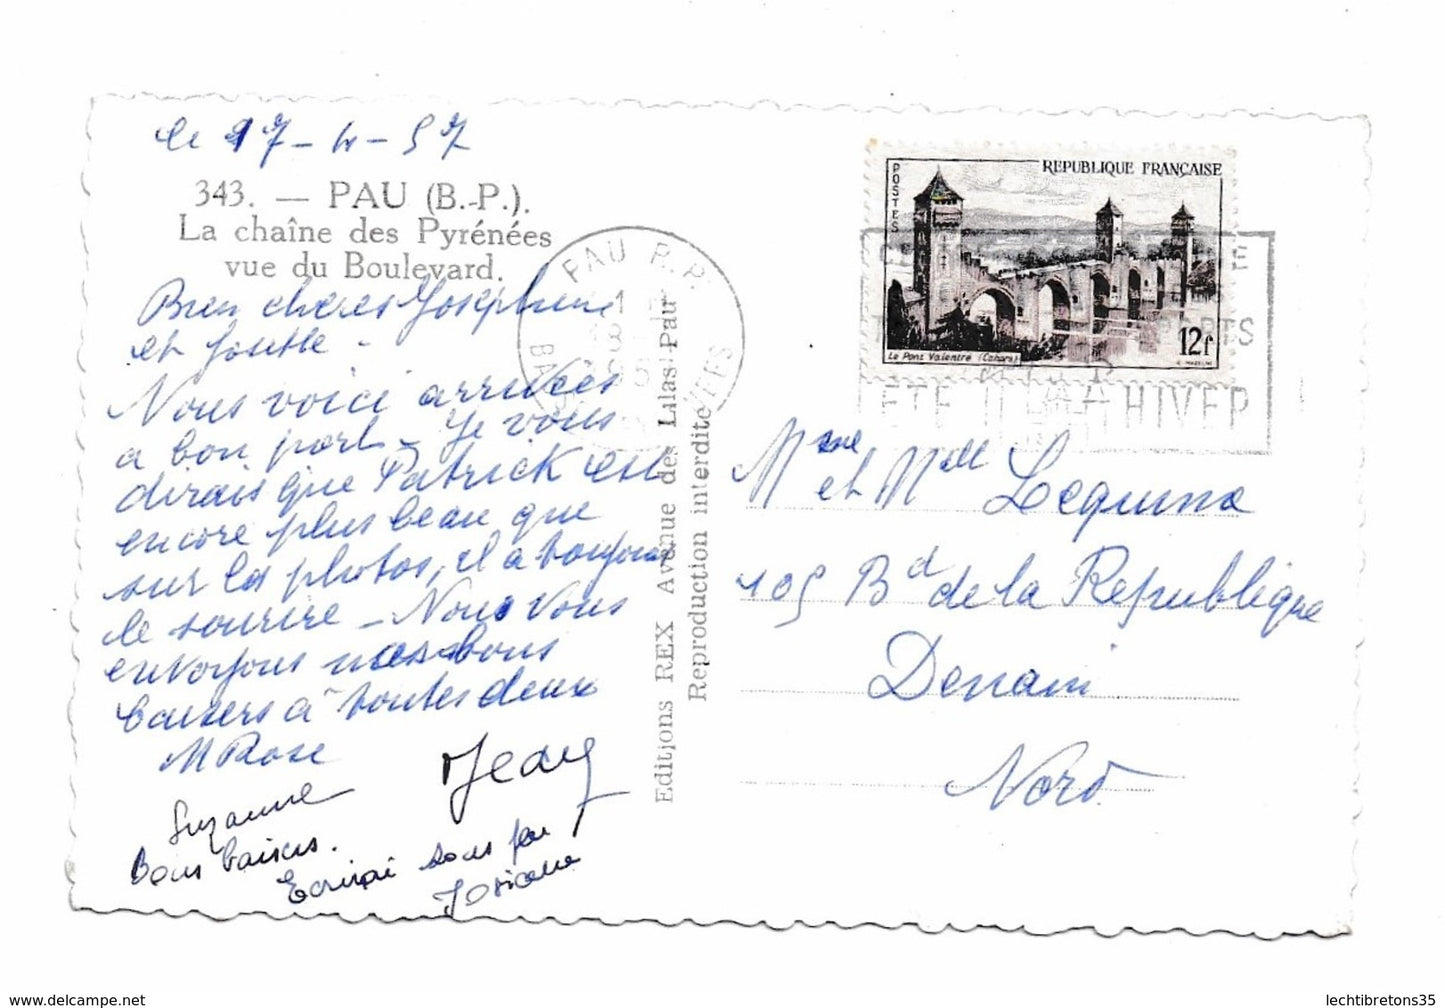 le 17-4-57
343. — PAU (B.-P.).
La chaîne des Pyrénées
vue du Boulevard.
Bien chères Joséphine
et
Nous voici arrivées
a bon port - Je vous
dirais que Patrick est
encore plus beau que
sur les photos, il a toujours
le sourire - Nous vous
envoyons nos bons
baisers à toutes deux
M Rose
Suzanne
Bons baisers.
Ecrirai sous peu
Josiane
Editions REX Avenue des Lilas-Pau
Reproduction interdite
PAU R.P.
REPUBLIQUE FRANÇAISE
POSTES
12f
Le Pont Valentré (Cahors)
ÉTÉ HIVER
Mme et Mlle Lequime
105 Bd de la Republique
Denain
Nord
delcampe.net
lechtibretons35